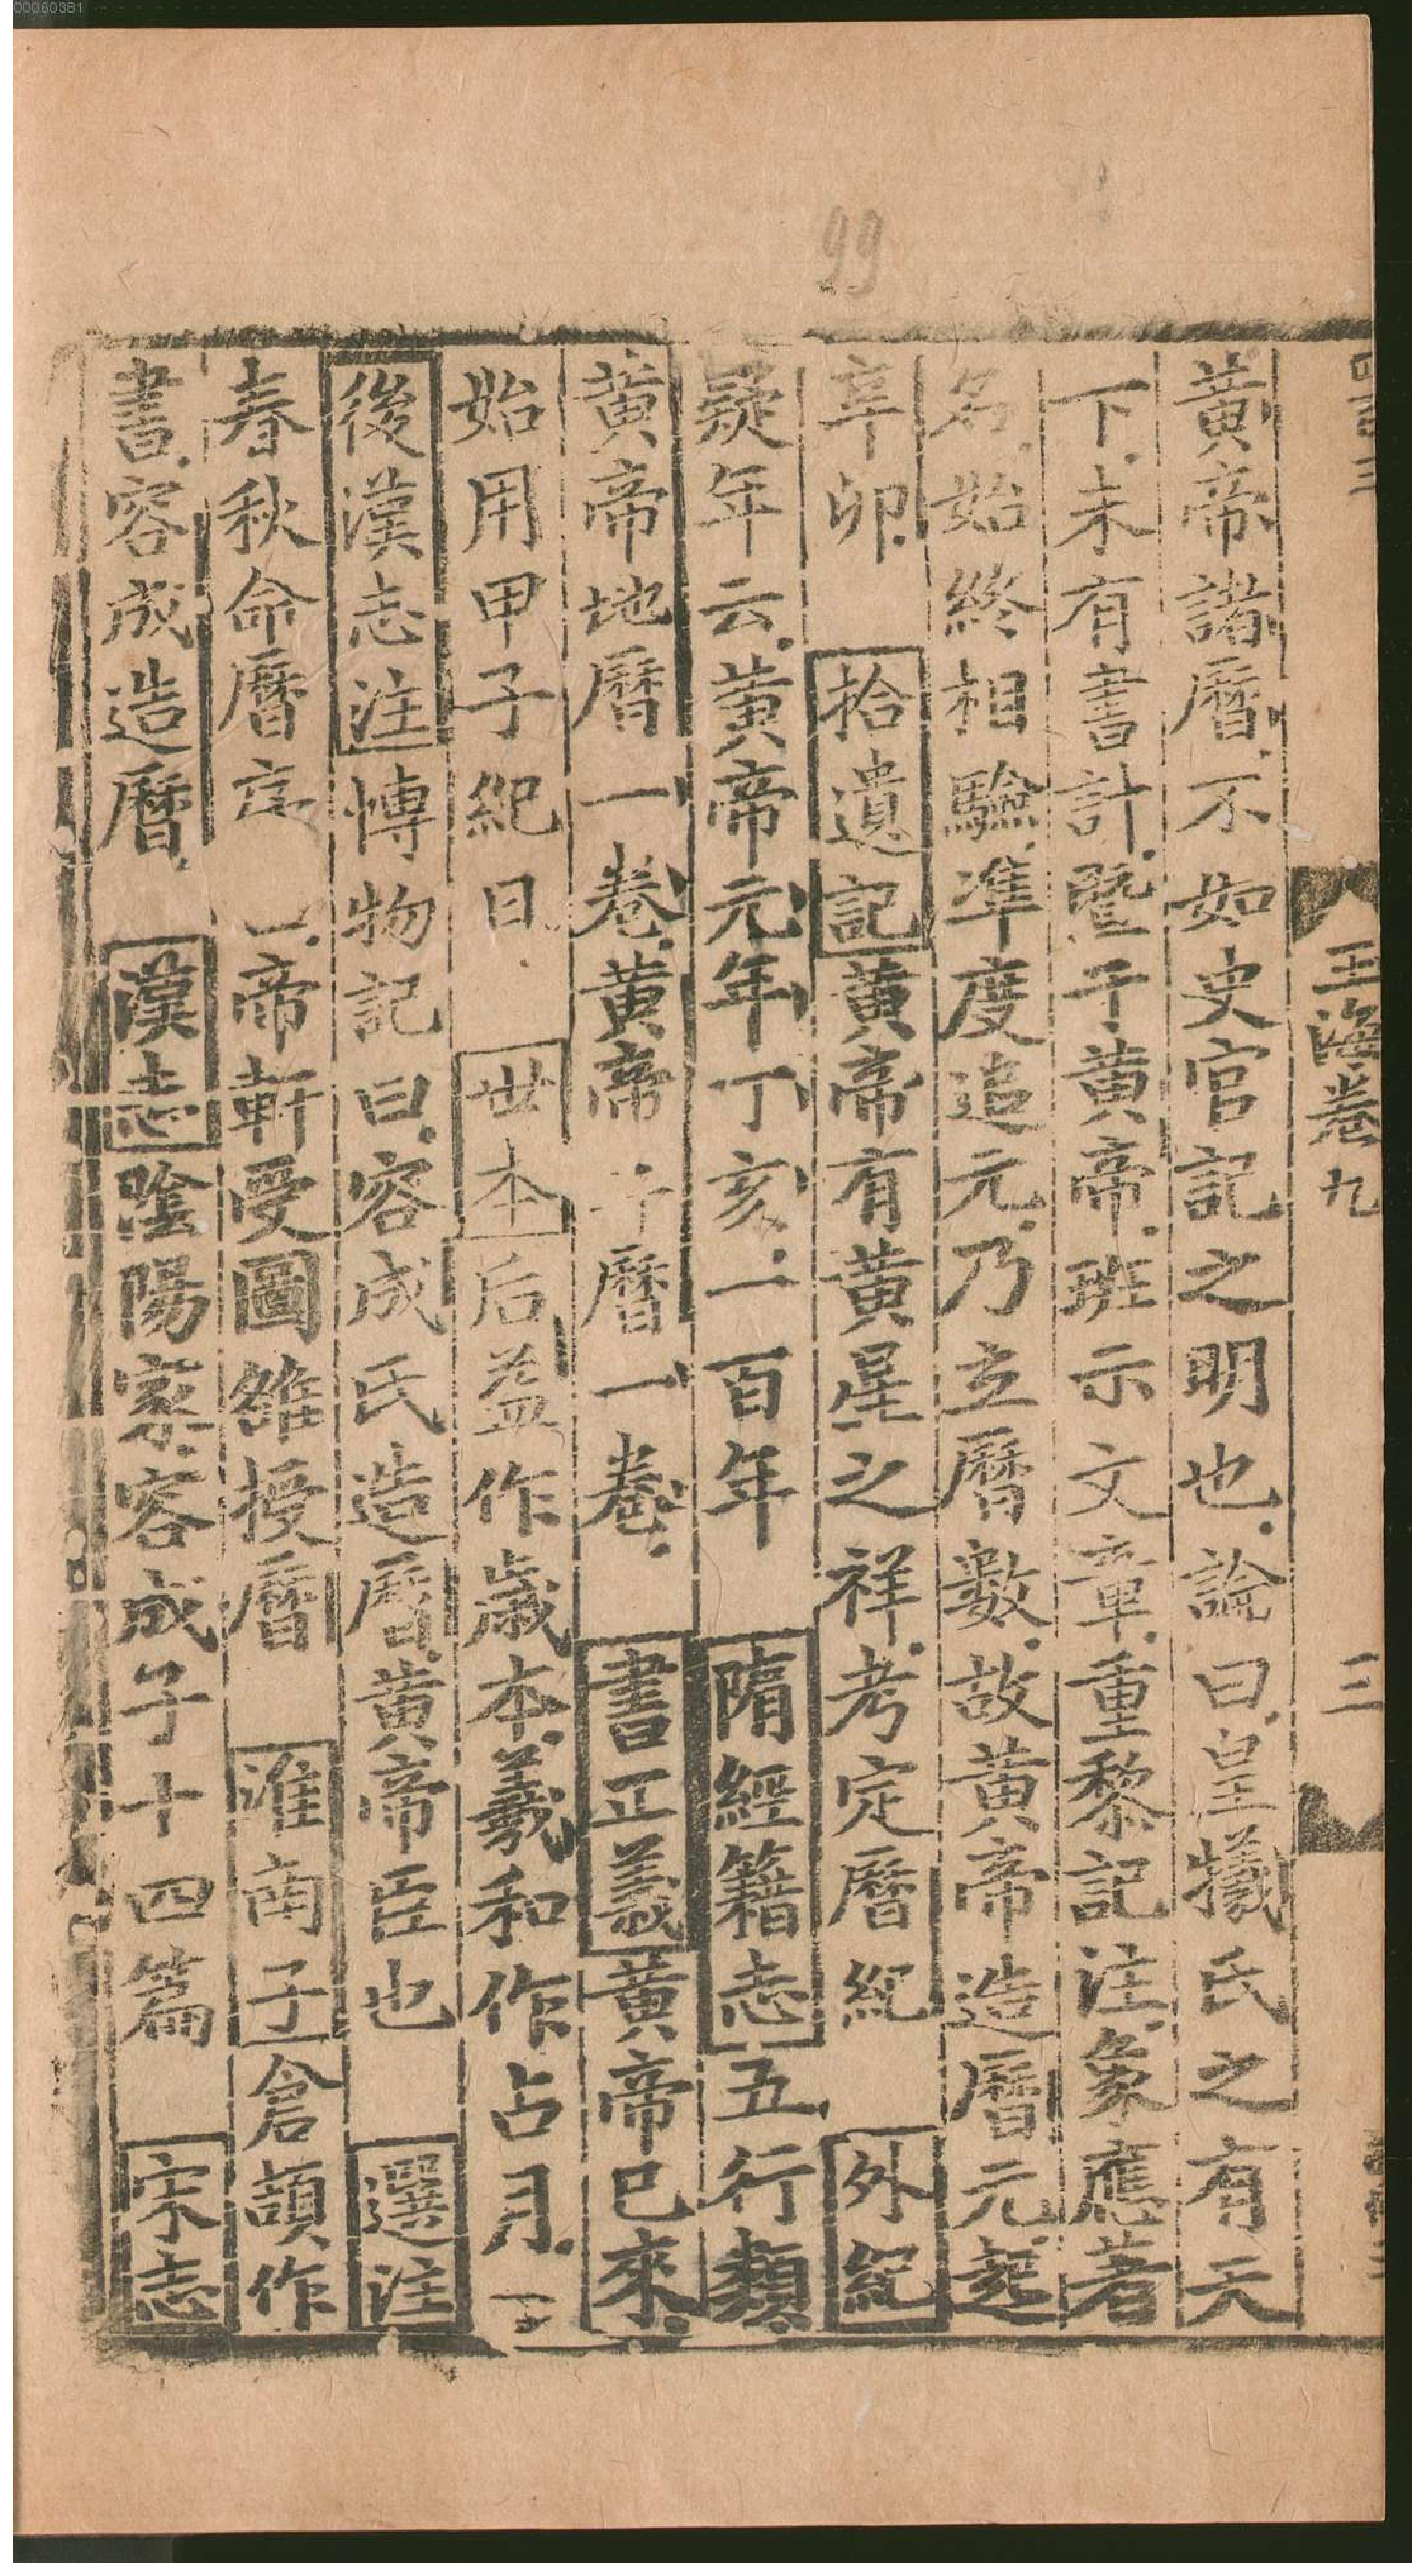 00060381
99
玉海卷九
三
黃帝諸曆不如史官記之明也論曰皇犧氏之有天
下未有書計曁于黃帝班示文章重黎記注象應著
名始終相驗凖度追元乃立曆數故黃帝造曆元起
辛卯 拾遺記黃帝有黃星之祥考定曆紀 外紀
疑年云黃帝元年丁亥一百年 隋經籍志五行類
黃帝地曆一卷黃帝 曆一卷 書正義黃帝已來
始用甲子紀日 世本后益作歲本羲和作占月
後漢志注博物記曰容成氏造曆黃帝臣也 選注
春秋命曆序 帝軒受圖雒授曆 淮南子倉頡作
書容成造曆 漢志陰陽家容成子十四篇 宋志